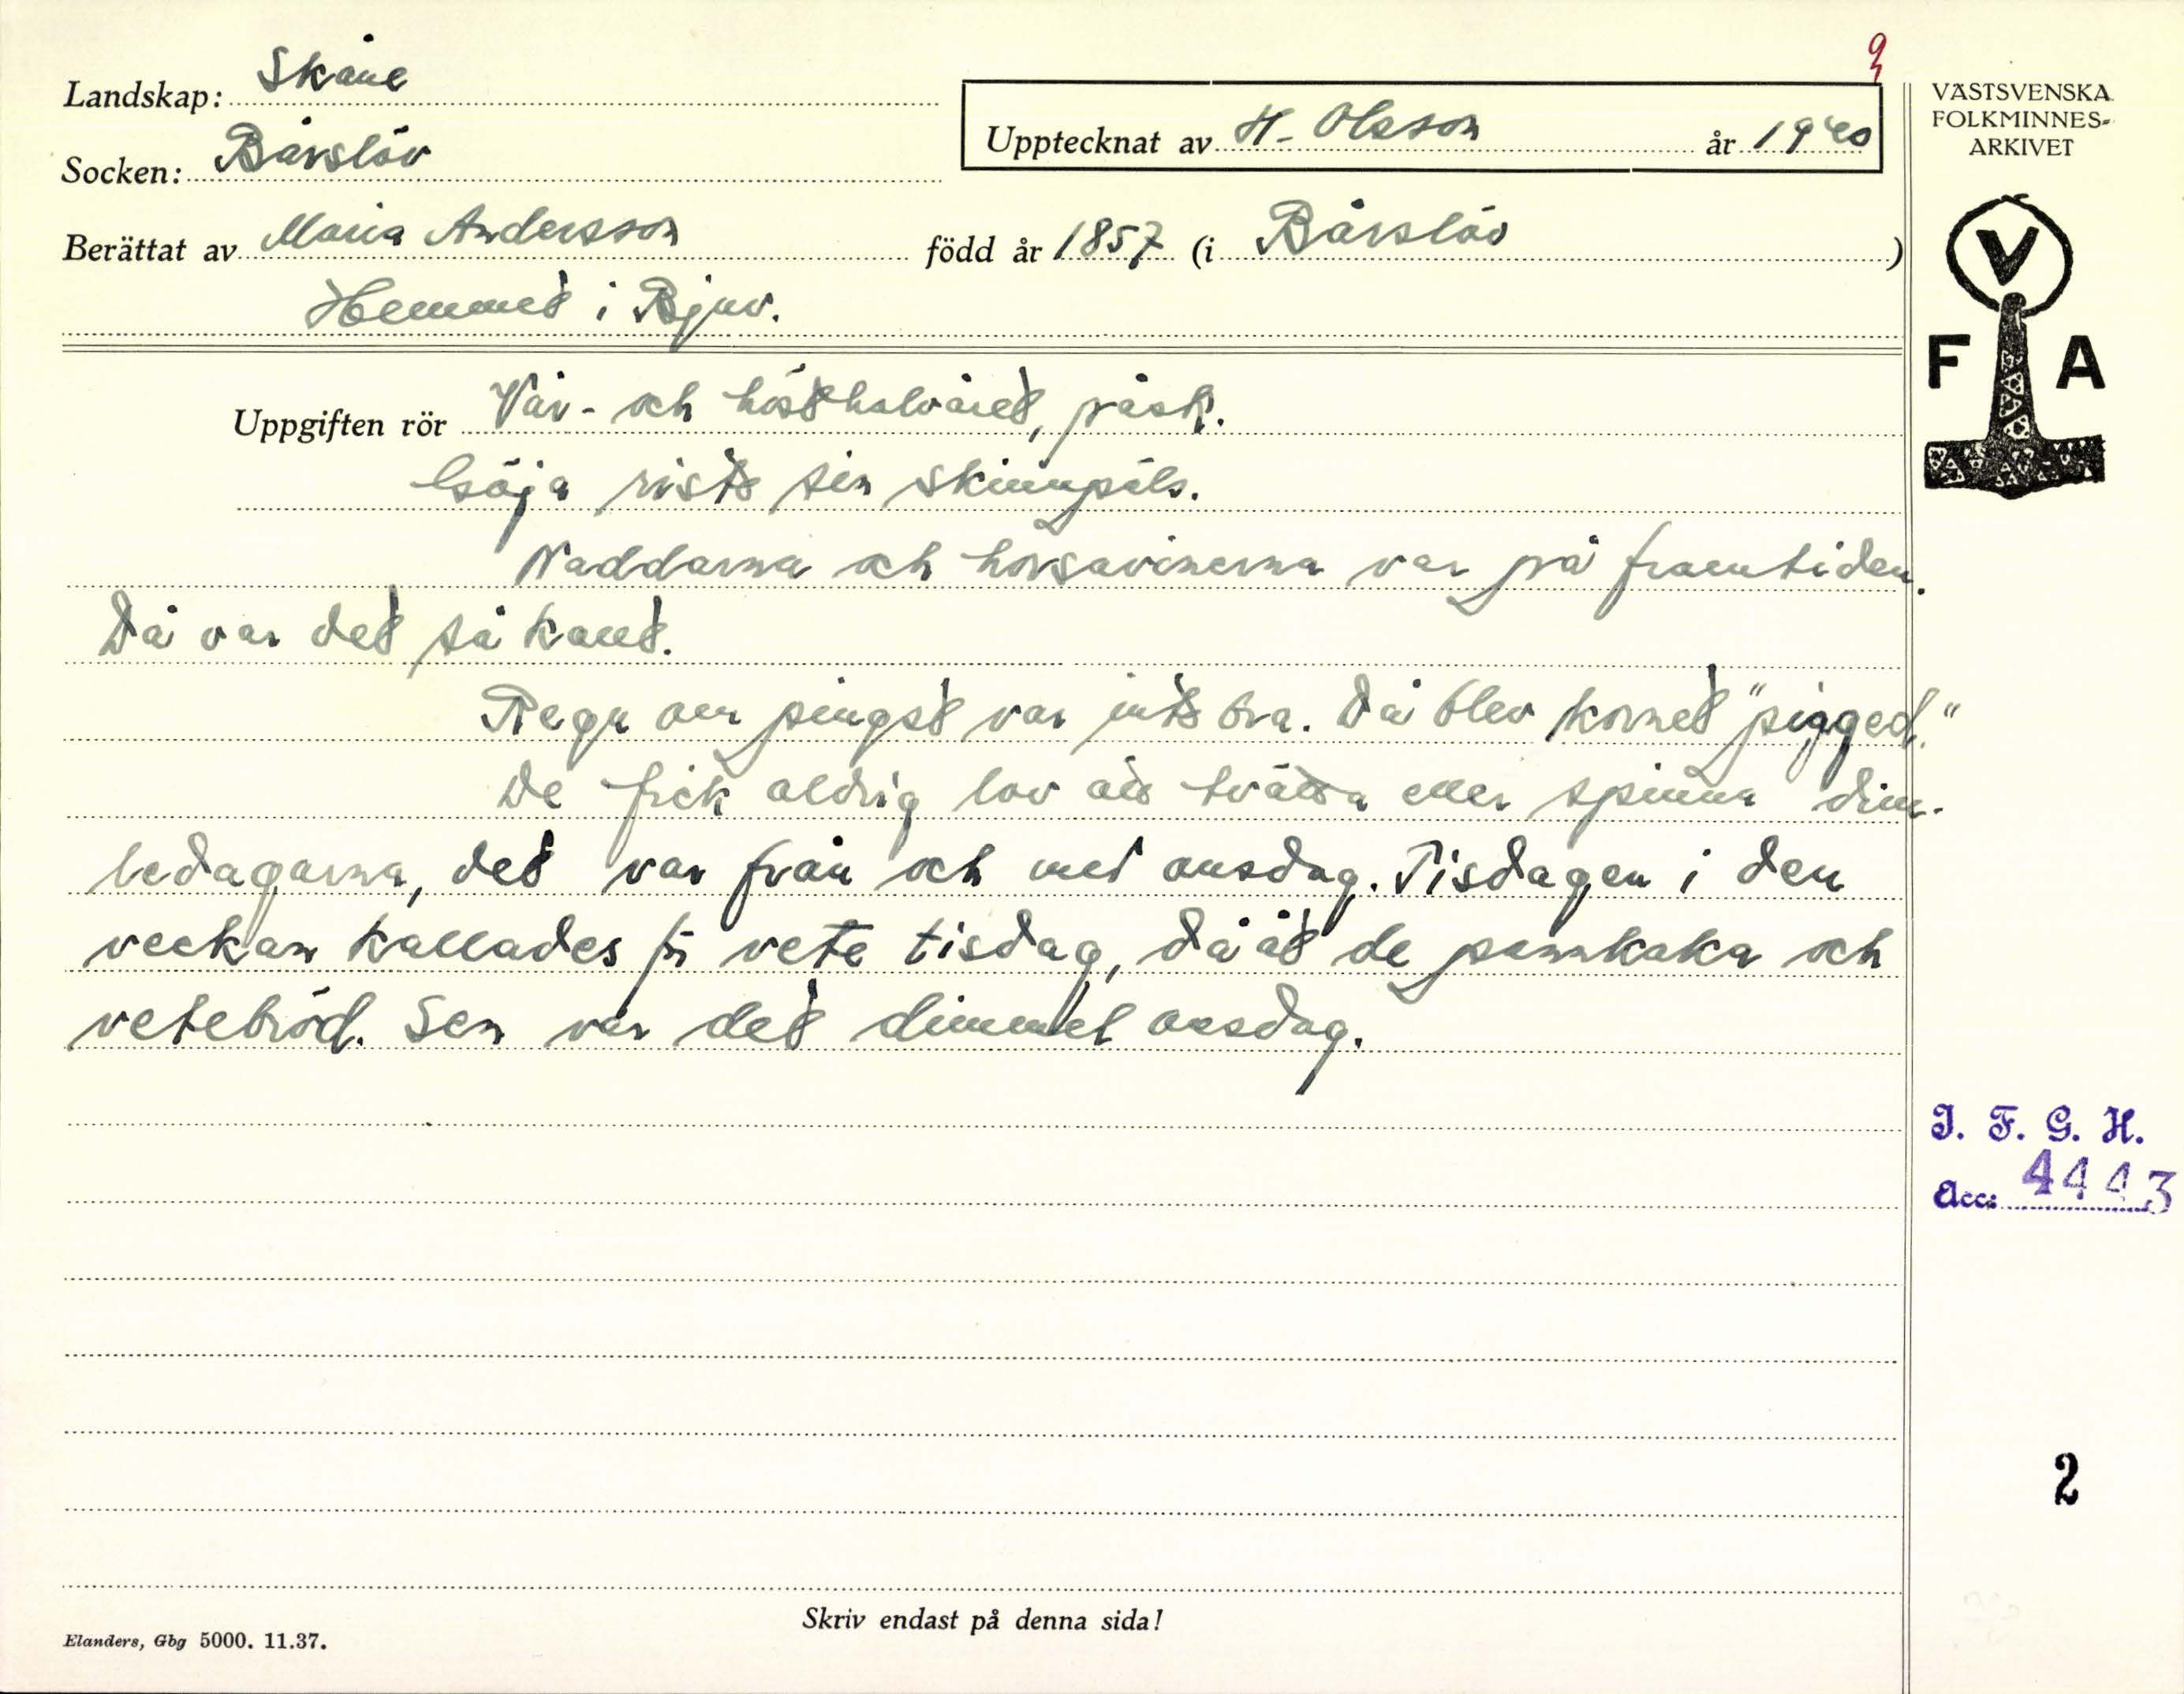 Landskap: Skåne
Socken: Bårslöv
Upptecknat av H. Olsson år 1940
Berättat av Maria Andersson född år 1857 (i Bårslöv)
Hemmet i Bjuv.
VÄSTSVENSKA
FOLKMINNES-
ARKIVET
V
F A
Uppgiften rör Vår- och hösthalvåret, påsk.
Göja riste sin skinnpäls.
Naddarna och horsavinerna var på framtiden.
Då var det så kallt.
Regn om pingst var inte bra. Då blev kornet "pigged."
De fick aldrig lov att tvätta eller spinna dim-
beldagarna, det var från och med onsdag. Tisdagen i den
veckan kallades för vete tisdag, då åt de pannkaka och
vetebröd. Sen var det dimmel onsdag.
I. F. G. H.
Acc: 4443
2
Skriv endast på denna sida!
Elanders, Gbg 5000. 11.37.